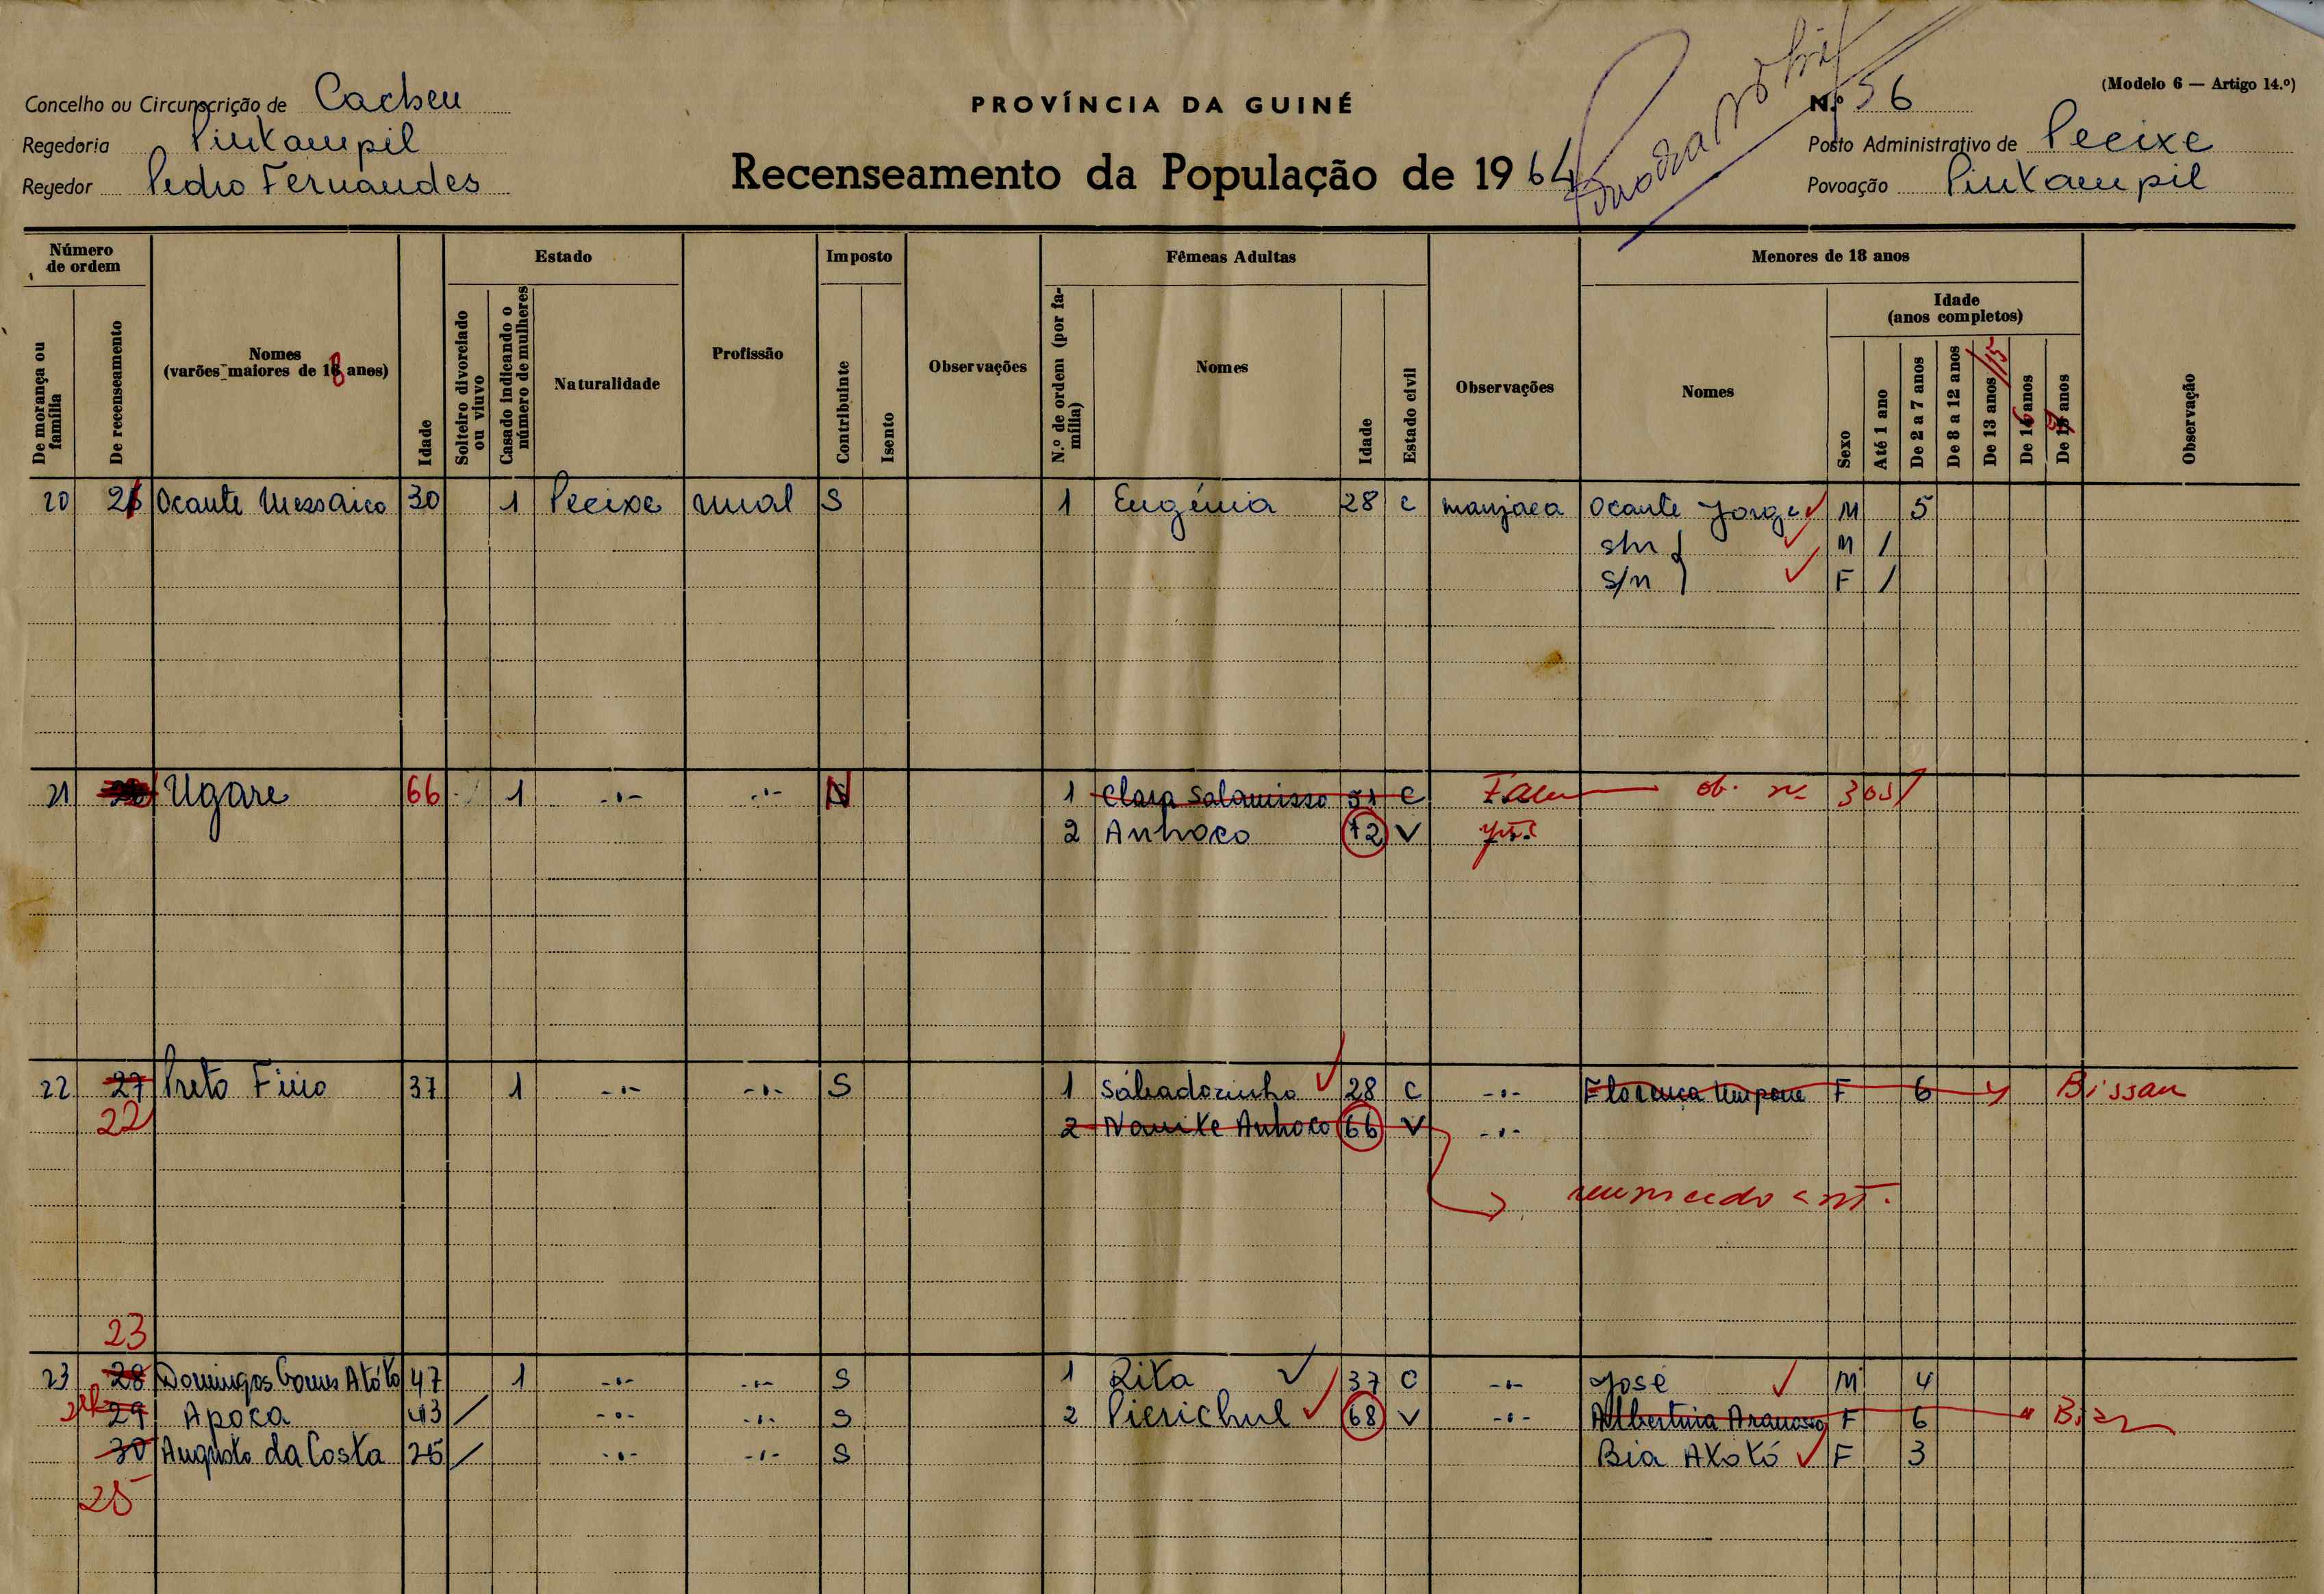 Concelho ou Circunscrição de Cacheu
Regedoria Pintampil
Regedor Pedro Fernandes
PROVÍNCIA DA GUINÉ
Recenseamento da População de 1964
(Modelo 6 — Artigo 14.º)
N.º 56
Posto Administrativo de Pecixe
Povoação Pintampil
Número de ordem
De morança ou família
De recenseamento
Nomes
(varões maiores de 18 anos)
Idade
Estado
Solteiro divorciado ou viuvo
Casado indicando o número de mulheres
Naturalidade
Profissão
Imposto
Contribuinte
Isento
Observações
Fêmeas Adultas
N.º de ordem (por família)
Nomes
Idade
Estado civil
Observações
Menores de 18 anos
Nomes
Sexo
Idade
(anos completos)
Até 1 ano
De 2 a 7 anos
De 8 a 12 anos
De 13 anos /15
De 16 anos
De 17 anos
Observação
20 Ocante 30 1 Pecixe rural S 1 Eugénia 28 C manjaca Ocante Jorge M 5
s/n M /
s/n F /
21 Ugare 66 1 -"- -"- N 1 Clara Salamisso 51 C
2 Anhoco 72 V
22 27 Preto Finio 37 1 -"- -"- S 1 Sábadozinho 28 C -"- F 6 Bissau
22 2 Nanike Anhoco 66 V -"-
23
23 28 Domingos Gomes Atóto 47 1 -"- -"- S 1 Rita 37 C -"- José M 4
24 29 Apoca 43 / -"- -"- S 2 Pierichul 68 V -"- Albertina F 6
30 Augusto da Costa 25 / -"- -"- S Bia Atotó F 3
25